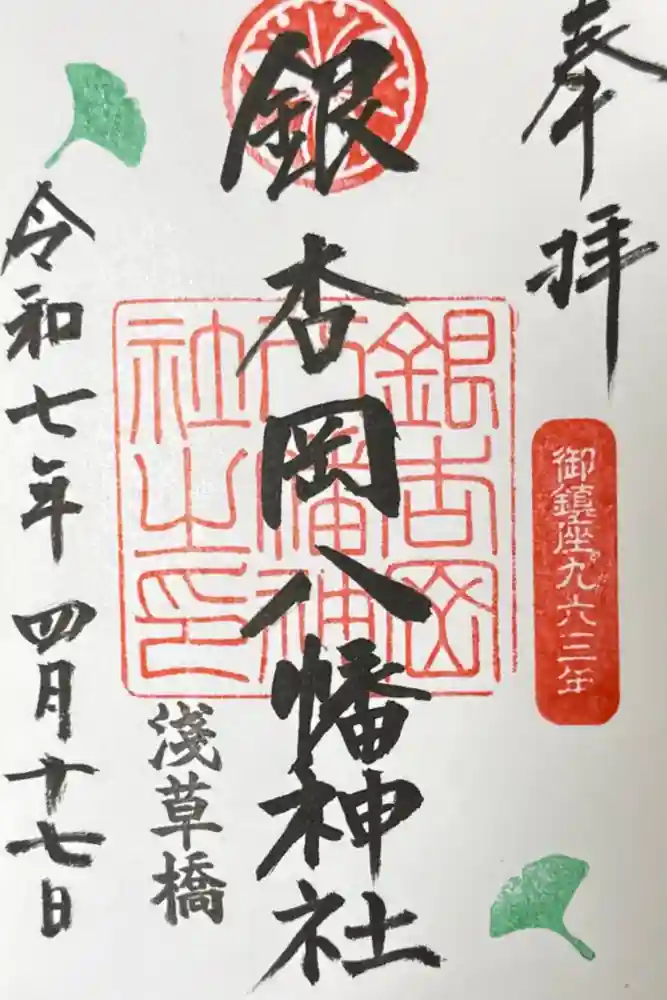 奉拝
御鎮座九六三年
銀杏岡八幡神社
銀杏岡
八幡神
社之印
浅草橋
令和七年 四月十七日